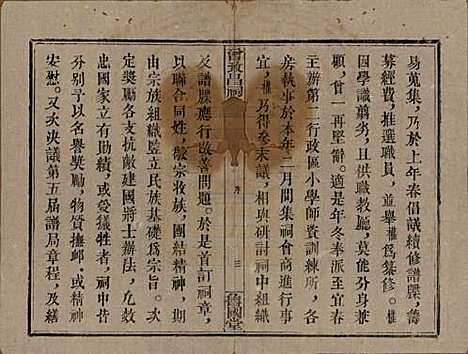 易蒐集，乃於上年春倡議續修譜牒，籌
募經費，推選職員，並舉權爲纂修。權
因學識謭劣，且供職教廳，莫能分身兼
顧，曾一再堅辭。適是年冬奉派至宜春
主辦第二行政區小學師資訓練所，
房執事於本年二月間集祠會商進行事
宜，權乃得參末議，相與研討祠中組織
曾敦昌祠
序
三
魯國堂
及譜牒應行改善問題。於是首訂祠章，
以聯合同姓，敬宗收族，團結精神，期
由宗族組織豎立民族基礎爲宗旨。次
定獎勵各支抗敵建國將士辦法，凡效
忠國家立有勛績，或受犧牲者，祠中當
分別予以名譽獎勵，物質撫卹，或精神
安慰。又次決議第五屆譜局章程，及繕